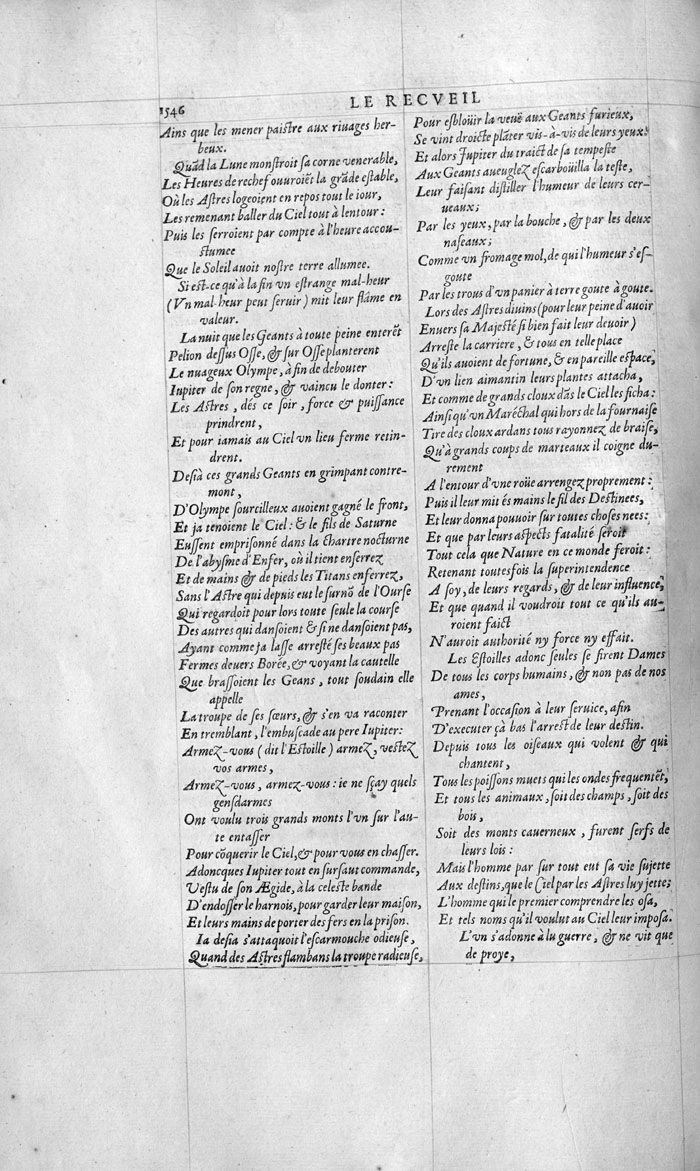 1546
LE RECVEIL
Ains que les mener paiſtre aux riuages her-
beux.
Quãd la Lune monſtroit ſa corne venerable,
Les Heures de rechef ouuroiẽt la grãde eſtable,
Où les Aſtres logeoient en repos tout le iour,
Les remenant baller du Ciel tout à lentour:
Puis les ſerroient par compte à l'heure accou-
ſtumee
Que le Soleil auoit noſtre terre allumee.
Si eſt-ce qu'à la fin vn eſtrange mal-heur
(Vn mal-heur peut ſeruir) mit leur flãme en
valeur.
La nuit que les Geants à toute peine enterẽt
Pelion deſſus Oſſe, & ſur Oſſe planterent
Le nuageux Olympe, à fin de debouter
Iupiter de ſon regne, & vaincu le donter:
Les Aſtres, dés ce ſoir, force & puiſſance
prindrent,
Et pour iamais au Ciel vn lieu ferme retin-
drent.
Deſià ces grands Geants en grimpant contre-
mont,
D'Olympe ſourcilleux auoient gagné le front,
Et ja tenoient le Ciel: & le fils de Saturne
Euſſent empriſonné dans la chartre nocturne
De l'abyſme d'Enfer, où il tient enſerrez
Et de mains & de pieds les Titans enferrez,
Sans l'Aſtre qui depuis eut le ſurnõ de l'Ourſe
Qui regardoit pour lors toute ſeule la courſe
Des autres qui danſoient & ſi ne danſoient pas,
Ayant comme ja laſſe arreſté ſes beaux pas
Fermes deuers Borée, & voyant la cautelle
Que braſſoient les Geans, tout ſoudain elle
appelle
La troupe de ſes ſœurs, & s'en va raconter
En tremblant, l'embuſcade au pere Iupiter:
Armez-vous (dit l'Eſtoille) armez, veſtez
vos armes,
Armez-vous, armez-vous: ie ne ſçay quels
genſdarmes
Ont voulu trois grands monts l'vn ſur l'au-
te entaſſer
Pour cõquerir le Ciel, & pour vous en chaſſer.
Adoncques Iupiter tout en ſurſaut commande,
Veſtu de ſon Ægide, à la celeſte bande
D'endoſſer le harnois, pour garder leur maiſon,
Et leurs mains de porter des fers en la priſon.
Ia deſia s'attaquoit l'eſcarmouche odieuſe,
Quand des Aſtres flambans la troupe radieuſe,
Pour eſbloüir la veuë aux Geants furieux,
Se vint droicte plãter vis-à-vis de leurs yeux:
Et alors Iupiter du traict de ſa tempeſte
Aux Geants aueuglez eſcarboüilla la teſte,
Leur faiſant diſtiller l'humeur de leurs cer-
ueaux;
Par les yeux, par la bouche, & par les deux
naſeaux;
Comme vn fromage mol, de qui l'humeur s'eſ-
goute
Par les trous d'vn panier à terre goute à goute.
Lors des Aſtres diuins (pour leur peine d'auoir
Enuers ſa Majeſté ſi bien fait leur deuoir)
Arreſte la carriere, & tous en telle place
Qu'ils auoient de fortune, & en pareille eſpace,
D'vn lien aimantin leurs plantes attacha,
Et comme de grands cloux dãs le Ciel les ficha:
Ainſi qu'vn Maréchal qui hors de la fournaiſe
Tire des cloux ardans tous rayonnez de braiſe,
Qu'à grands coups de marteaux il coigne du-
rement
A l'entour d'vne roüe arrengez proprement:
Puis il leur mit és mains le fil des Deſtinees,
Et leur donna pouuoir ſur toutes choſes nees:
Et que par leurs aſpects fatalité ſeroit
Tout cela que Nature en ce monde feroit:
Retenant toutesfois la ſuperintendence
A ſoy, de leurs regards, & de leur influence,
Et que quand il voudroit tout ce qu'ils au-
roient faict
N'auroit authorité ny force ny effait.
Les Eſtoilles adonc ſeules ſe firent Dames
De tous les corps humains, & non pas de nos
ames,
Prenant l'occaſion à leur ſeruice, afin
D'executer çà bas l'arreſt de leur deſtin.
Depuis tous les oiſeaux qui volent & qui
chantent,
Tous les poiſſons muets qui les ondes frequentẽt,
Et tous les animaux, ſoit des champs, ſoit des
bois,
Soit des monts cauerneux, furent ſerfs de
leurs lois:
Mais l'homme par ſur tout eut ſa vie ſujette
Aux deſtins, que le Ciel par les Aſtres luy jette;
L'homme qui le premier comprendre les oſa,
Et tels noms qu'il voulut au Ciel leur impoſa.
L'vn s'adonne à lu guerre, & ne vit que
de proye,